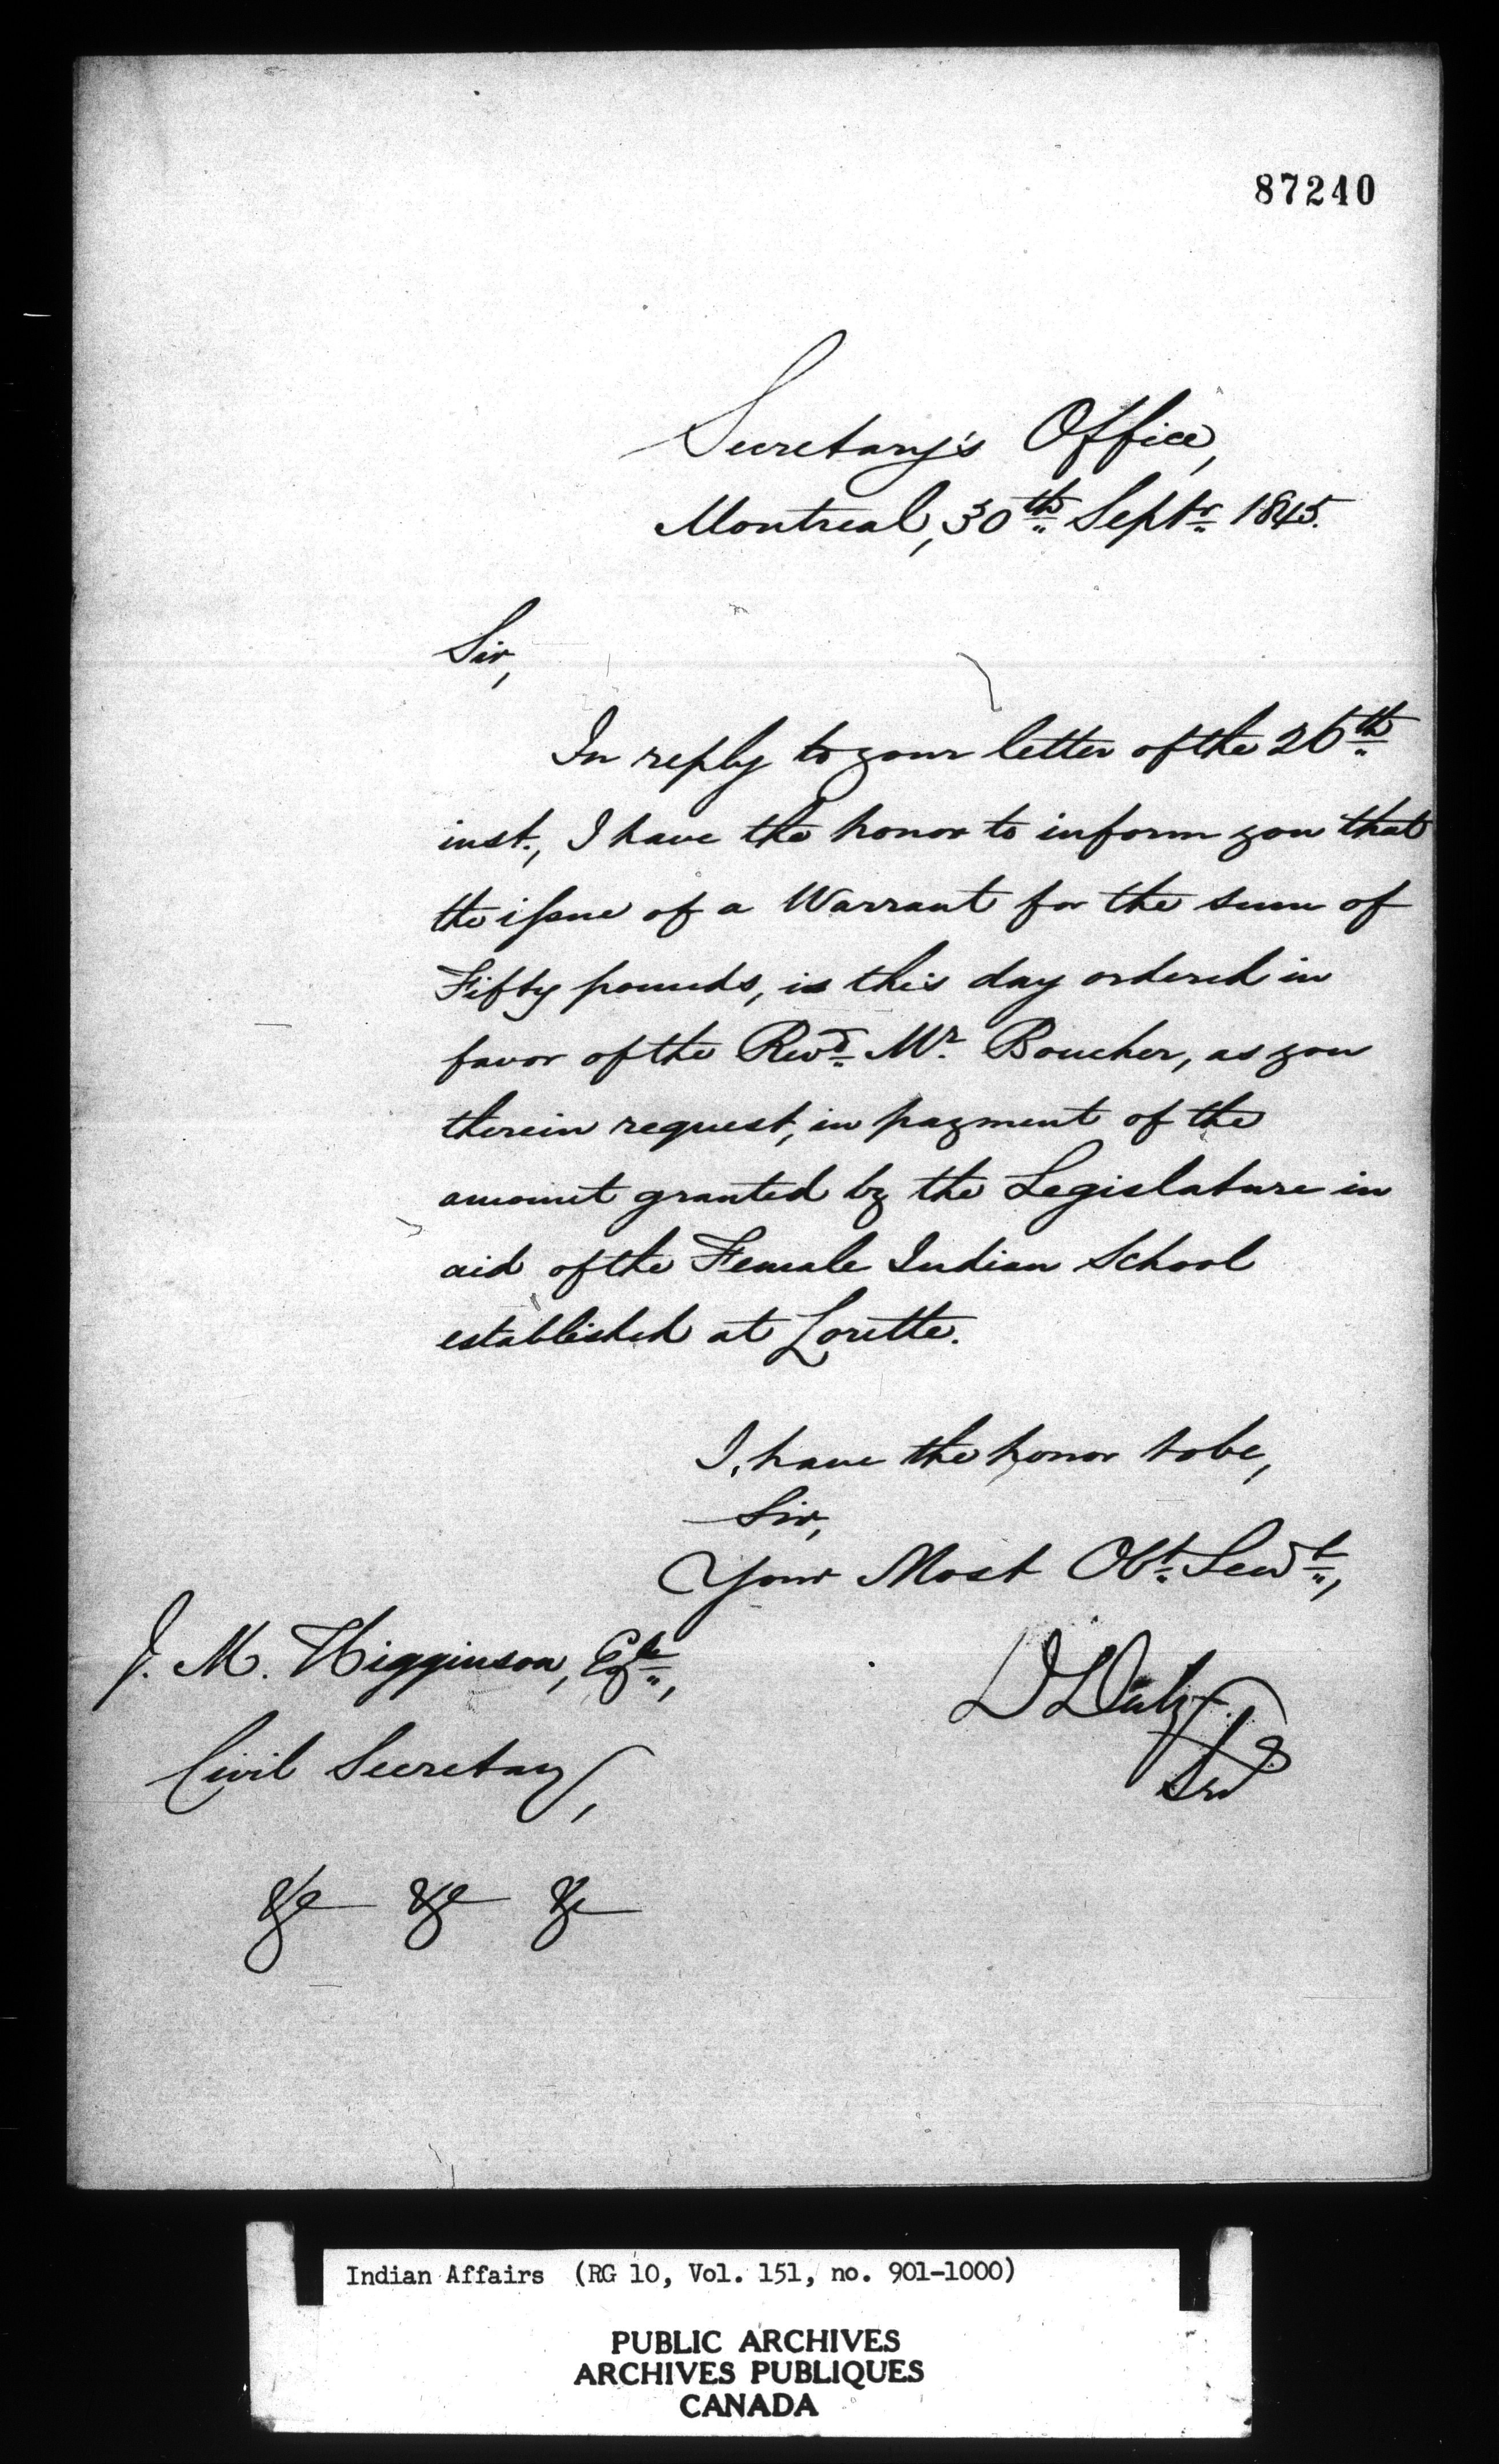 87240
Secretary's Office,
Montreal, 30th Septr 1845.
Sir,
In reply to your letter of the 26th
inst., I have the honor to inform you that
the issue of a Warrant for the sum of
Fifty pounds, is this day ordered in
favor of the Revd Mr. Boucher, as you
therein request, in payment of the
amount granted by the Legislature in
aid of the Female Indian School
established at Lorette.
I have the honor to be,
Sir,
Your Most Obt. Servt,
J. M. Higginson, Esqre,
D Daly
Civil Secretary,
&c &c &c
Indian Affairs (RG 10, Vol. 151, no. 901-1000)
PUBLIC ARCHIVES
ARCHIVES PUBLIQUES
CANADA